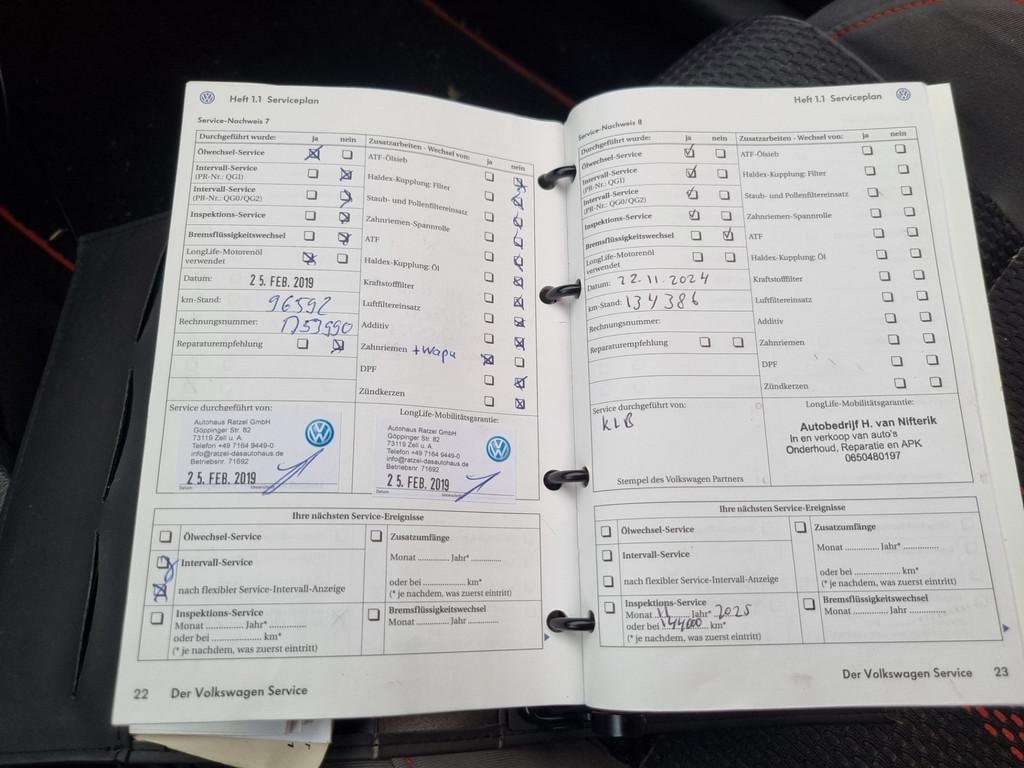 Heft 1.1 Serviceplan
Service-Nachweis 7
Durchgeführt wurde: ja nein
Ölwechsel-Service
Intervall-Service
(PR-Nr.: QGI)
Intervall-Service
(PR-Nr.: QG0/QG2)
Inspektions-Service
Bremsflüssigkeitswechsel
LongLife-Motorenöl
verwendet
Datum: 25. FEB. 2019
km-Stand: 96592
Rechnungsnummer: 1753990
Reparaturempfehlung
Zusatzarbeiten - Wechsel von: ja nein
ATF-Ölsieb
Haldex-Kupplung: Filter
Staub- und Pollenfiltereinsatz
Zahnriemen-Spannrolle
ATF
Haldex-Kupplung: Öl
Kraftstofffilter
Luftfiltereinsatz
Additiv
Zahnriemen + Wapu
DPF
Zündkerzen
Service durchgeführt von:
Autohaus Ratzel GmbH
Göppinger Str. 82
73119 Zell u. A.
Telefon +49 7164 9449-0
info@ratzel-dasautohaus.de
Betriebsnr. 71692
25. FEB. 2019
Datum
LongLife-Mobilitätsgarantie:
Autohaus Ratzel GmbH
Göppinger Str. 82
73119 Zell u. A.
Telefon +49 7164 9449-0
info@ratzel-dasautohaus.de
Betriebsnr. 71692
25. FEB. 2019
Datum
Ihre nächsten Service-Ereignisse
Ölwechsel-Service
Intervall-Service
nach flexibler Service-Intervall-Anzeige
Inspektions-Service
Monat ............ Jahr* ............
oder bei ................ km*
(* je nachdem, was zuerst eintritt)
Zusatzumfänge
Monat ........... Jahr* ............
oder bei .............. km*
(* je nachdem, was zuerst eintritt)
Bremsflüssigkeitswechsel
Monat ........... Jahr* ............
22 Der Volkswagen Service
Heft 1.1 Serviceplan
Service-Nachweis 8
Durchgeführt wurde: ja nein
Ölwechsel-Service
Intervall-Service
(PR-Nr.: QGI)
Intervall-Service
(PR-Nr.: QG0/QG2)
Inspektions-Service
Bremsflüssigkeitswechsel
LongLife-Motorenöl
verwendet
Datum: 22.11.2024
km-Stand: 134386
Rechnungsnummer:
Reparaturempfehlung
Zusatzarbeiten - Wechsel von: ja nein
ATF-Ölsieb
Haldex-Kupplung: Filter
Staub- und Pollenfiltereinsatz
Zahnriemen-Spannrolle
ATF
Haldex-Kupplung: Öl
Kraftstofffilter
Luftfiltereinsatz
Additiv
Zahnriemen
DPF
Zündkerzen
Service durchgeführt von:
KLB
Stempel des Volkswagen Partners
LongLife-Mobilitätsgarantie:
Autobedrijf H. van Nifterik
In en verkoop van auto's
Onderhoud, Reparatie en APK
0650480197
Ihre nächsten Service-Ereignisse
Ölwechsel-Service
Intervall-Service
nach flexibler Service-Intervall-Anzeige
Inspektions-Service
Monat 11 Jahr* 2025
oder bei 144000 km*
(* je nachdem, was zuerst eintritt)
Zusatzumfänge
Monat ........... Jahr* ............
oder bei .............. km*
(* je nachdem, was zuerst eintritt)
Bremsflüssigkeitswechsel
Monat ........... Jahr* ............
Der Volkswagen Service 23